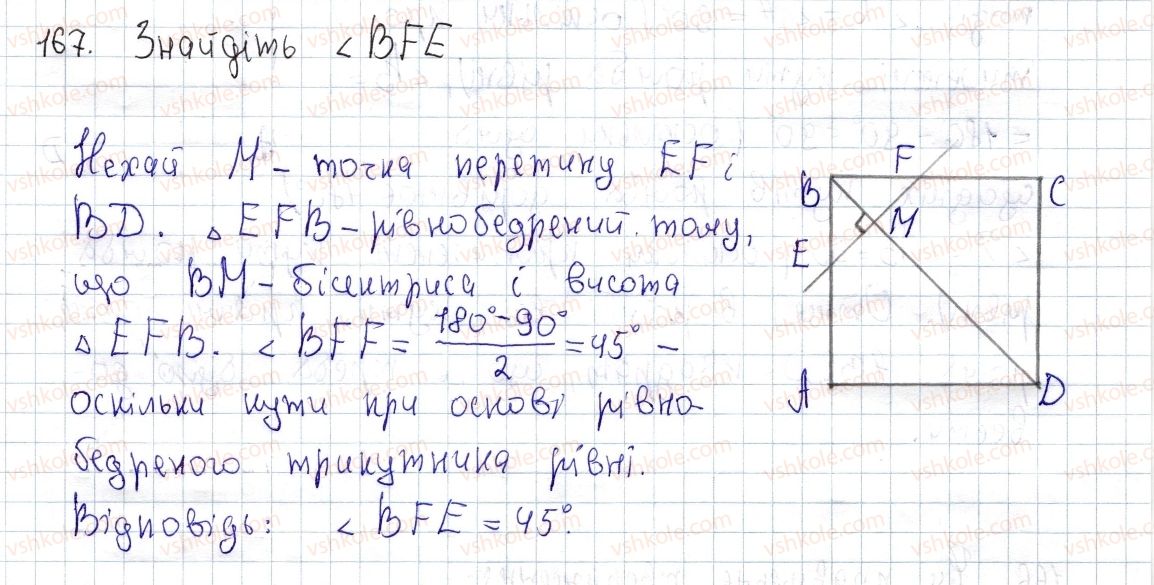 167. Знайдіть <BFE
Нехай M - точка перетину EF і
BD. △EFB - рівнобедрений. тому,
що BM - бісектриса і висота
△EFB. <BFF = 180° - 90° / 2 = 45° -
оскільки кути при основі рівно-
бедреного трикутника рівні.
Відповідь: <BFE = 45°.
B F C
M
E
A D
vshkole.com